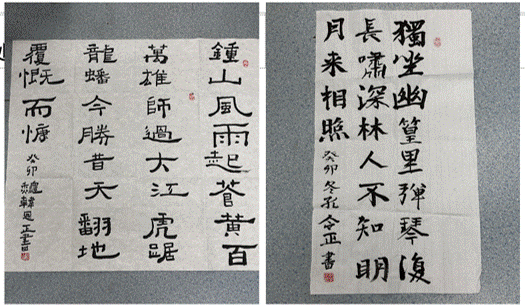 鍾山風雨起蒼黄百
萬雄師過大江虎踞
龍蟠今勝昔天翻地
覆慨而慷 癸卯 正書
獨坐幽篁里彈琴復
長嘯深林人不知明
月来相照 癸卯冬孔令正書